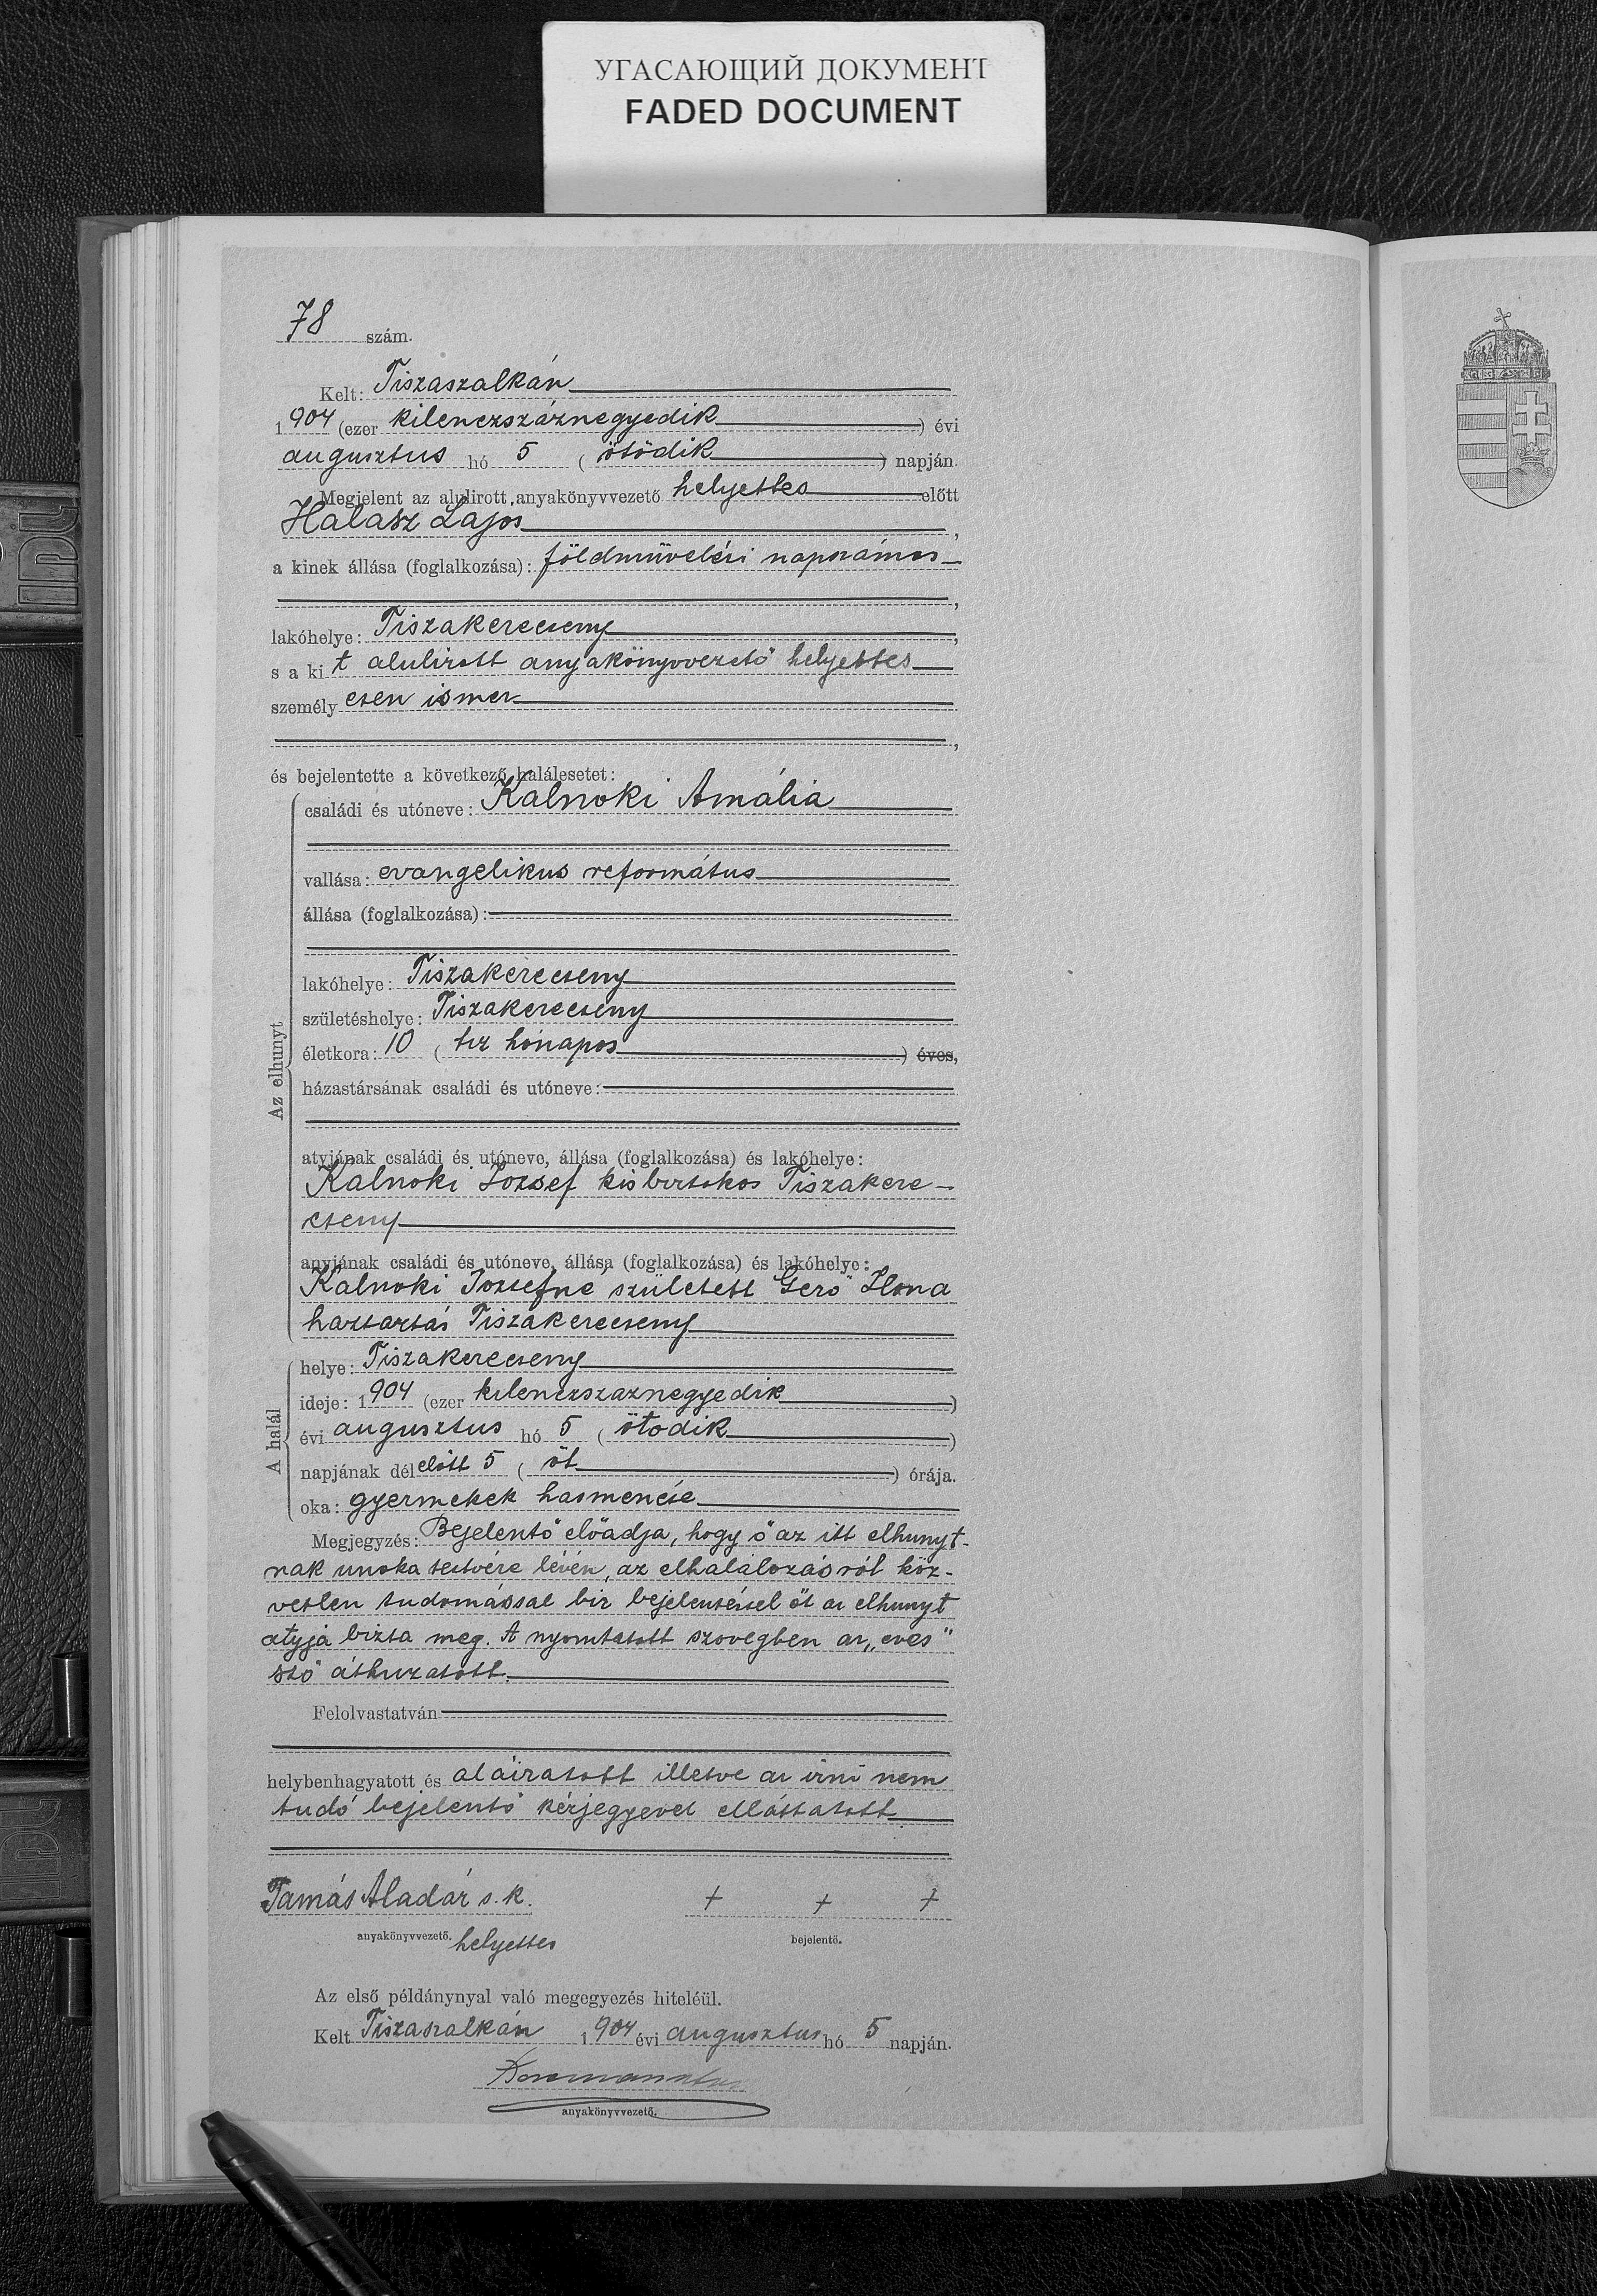 УГАСАЮЩИЙ ДОКУМЕНТ
FADED DOCUMENT
78 szám.
Kelt: Tiszaszalkán
1904 (ezer kilenczszáznegyedik) évi
augusztus hó 5 (ötödik) napján.
Megjelent az alulirott anyakönyvvezető helyettes előtt
Halász Lajos,
a kinek állása (foglalkozása): földmüvelési napszámos
,
lakóhelye: Tiszakerecseny,
s a kit alulirott anyakönyvvezető helyettes
személyesen ismer
,
és bejelentette a következő halálesetet:
Az elhunyt
családi és utóneve: Kalnoki Amália
vallása: evangelikus református
állása (foglalkozása):
lakóhelye: Tiszakerecseny
születéshelye: Tiszakerecseny
életkora: 10 (tiz hónapos) éves,
házastársának családi és utóneve:
atyjának családi és utóneve, állása (foglalkozása) és lakóhelye:
Kalnoki József kisbirtokos Tiszakere-
cseny
anyjának családi és utóneve, állása (foglalkozása) és lakóhelye:
Kalnoki Józsefné született Gerő Ilona
haztartás Tiszakerecseny
A halál
helye: Tiszakerecseny
ideje: 1904 (ezer kilenczszaznegyedik)
évi augusztus hó 5 (ötodik)
napjának délelőtt 5 (öt) órája.
oka: gyermekek hasmenése
Megjegyzés: Bejelentő előadja, hogy ő az itt elhunyt-
nak unoka testvére lévén, az elhalálozásról köz-
vetlen tudomással bir bejelentéssel őt az elhunyt
atyja bizta meg. A nyomtatott szovegben az „eves"
szó áthuzatott.
Felolvastatván
helybenhagyatott és aláiratott illetve az irni nem
tudó bejelentő kézjegyével elláttatott
Tamás Aladár s. k. + + +
anyakönyvvezető. helyettes bejelentő.
Az első példánynyal való megegyezés hiteléül.
Kelt Tiszaszalkán 1904 évi augusztus hó 5 napján.
anyakönyvvezető.